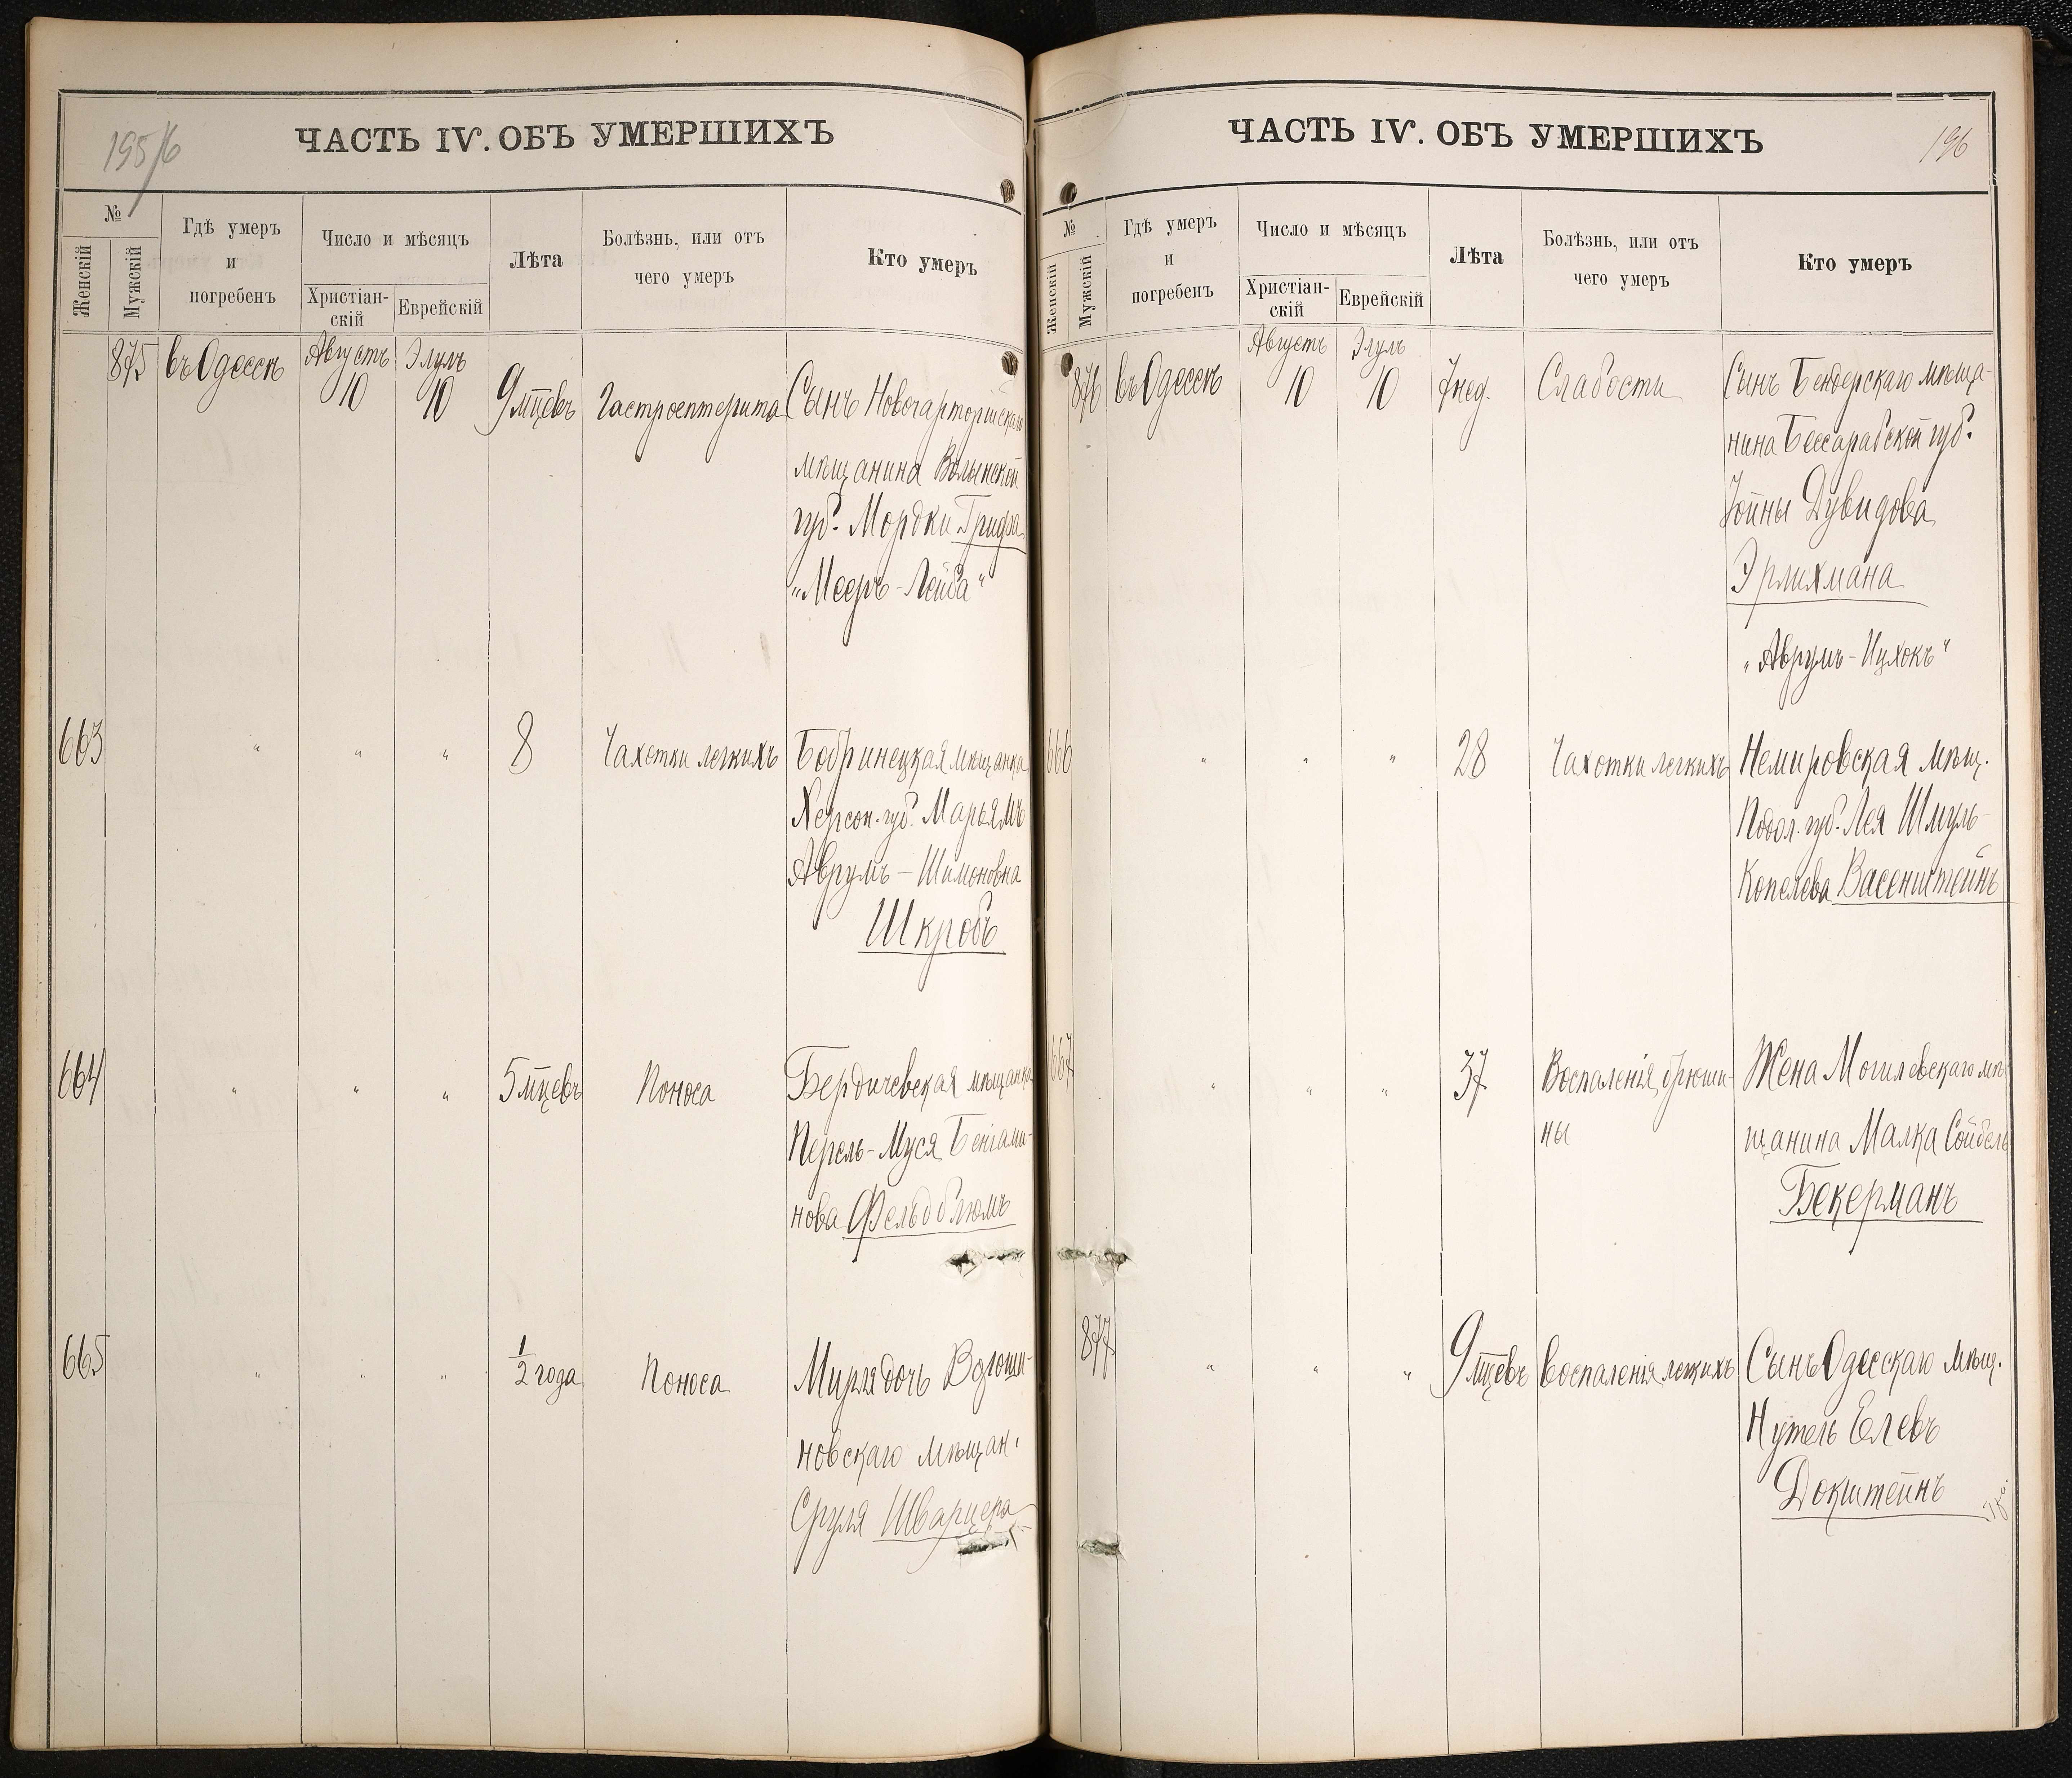 195/6
ЧАСТЬ IV. ОБЪ УМЕРШИХЪ
№
Женскій
Мужскій
Гдѣ умеръ
и
погребенъ
Число и мѣсяцъ
Христіан-
скій
Еврейскій
Лѣта
Болѣзнь, или отъ
чего умеръ
Кто умеръ
875 въ Одессѣ Августъ Элулъ
10 10 9 мцевъ Гастроентерита Сынъ Новочарторійскаго
мѣщанина Волынской
губ. Мордки
"Мееръ-Лейба"
663 " " " 8 Чахотки легкихъ Бобринецкая мѣщанка
Херсон. губ. Марьямъ
Аврумъ-Шимоновна
Шкробъ
664 " " " 5 мцевъ Поноса Бердичевская мѣщанка
Перель-Муся Беніами-
нова Фельдблюмъ
665 " " " 1/2 года Поноса Мирля дочь
новскаго мѣщан.
Сруля Шварцера
ЧАСТЬ IV. ОБЪ УМЕРШИХЪ
196
№
Женскій
Мужскій
Гдѣ умеръ
и
погребенъ
Число и мѣсяцъ
Христіан-
скій
Еврейскій
Лѣта
Болѣзнь, или отъ
чего умеръ
Кто умеръ
876 въ Одессѣ Августъ Элулъ
10 10 7 нед. Слабости Сынъ Бендерскаго мѣща-
нина Бессарабской губ.
Іойны Дувидова
Эрлихмана
"Аврумъ-Ицхокъ"
666 " " " 28 Чахотки легкихъ Немировская мѣщ.
Подол. губ. Лея Шмуль-
Копелева Васенштейнъ
667 " " " 37 Воспаленія брюши- Жена Могилевскаго мѣ
ны щанина Малка Сойбель
Бекерманъ
877 " " " 9 мцевъ Воспаленія легкихъ Сынъ Одесскаго мѣщ.
Нутель Елевъ
Докштейнъ